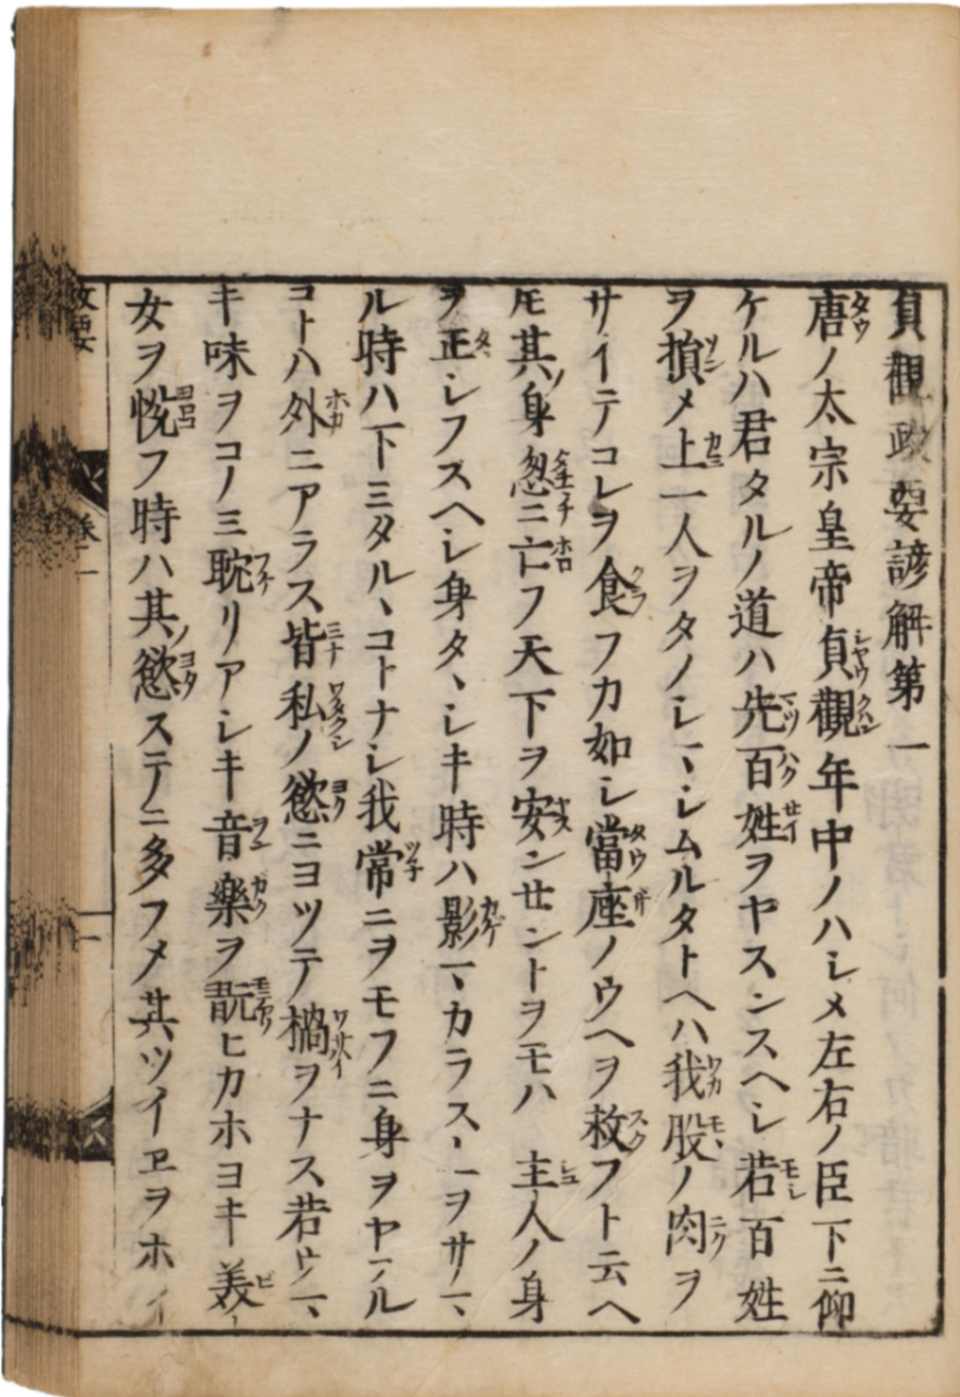 貞觀政要諺解第一
唐ノ太宗皇帝貞觀年中ノハシメ左右ノ臣下ニ仰
ケルハ君タルノ道ハ先百姓ヲヤスンスヘシ若百姓
ヲ損メ上一人ヲタノシマシムルタトヘハ我股ノ肉ヲ
サイテコレヲ食フカ如シ當座ノウヘヲ救フト云ヘ
𪜈其身忽ニ亡フ天下ヲ安ンセントヲモハ主人ノ身
ヲ正シフスヘシ身タヽシキ時ハ影マカラス上ヲサマ
ル時ハ下ミタルヽコトナシ我常ニヲモフニ身ヲヤフル
コトハ外ニアラス皆私ノ慾ニヨツテ禍ヲナス若ウマ
キ味ヲコノミ耽リアシキ音樂ヲ翫ヒカホヨキ美
女ヲ悦フ時ハ其慾ステニ多フメ其ツイヱヲホイ